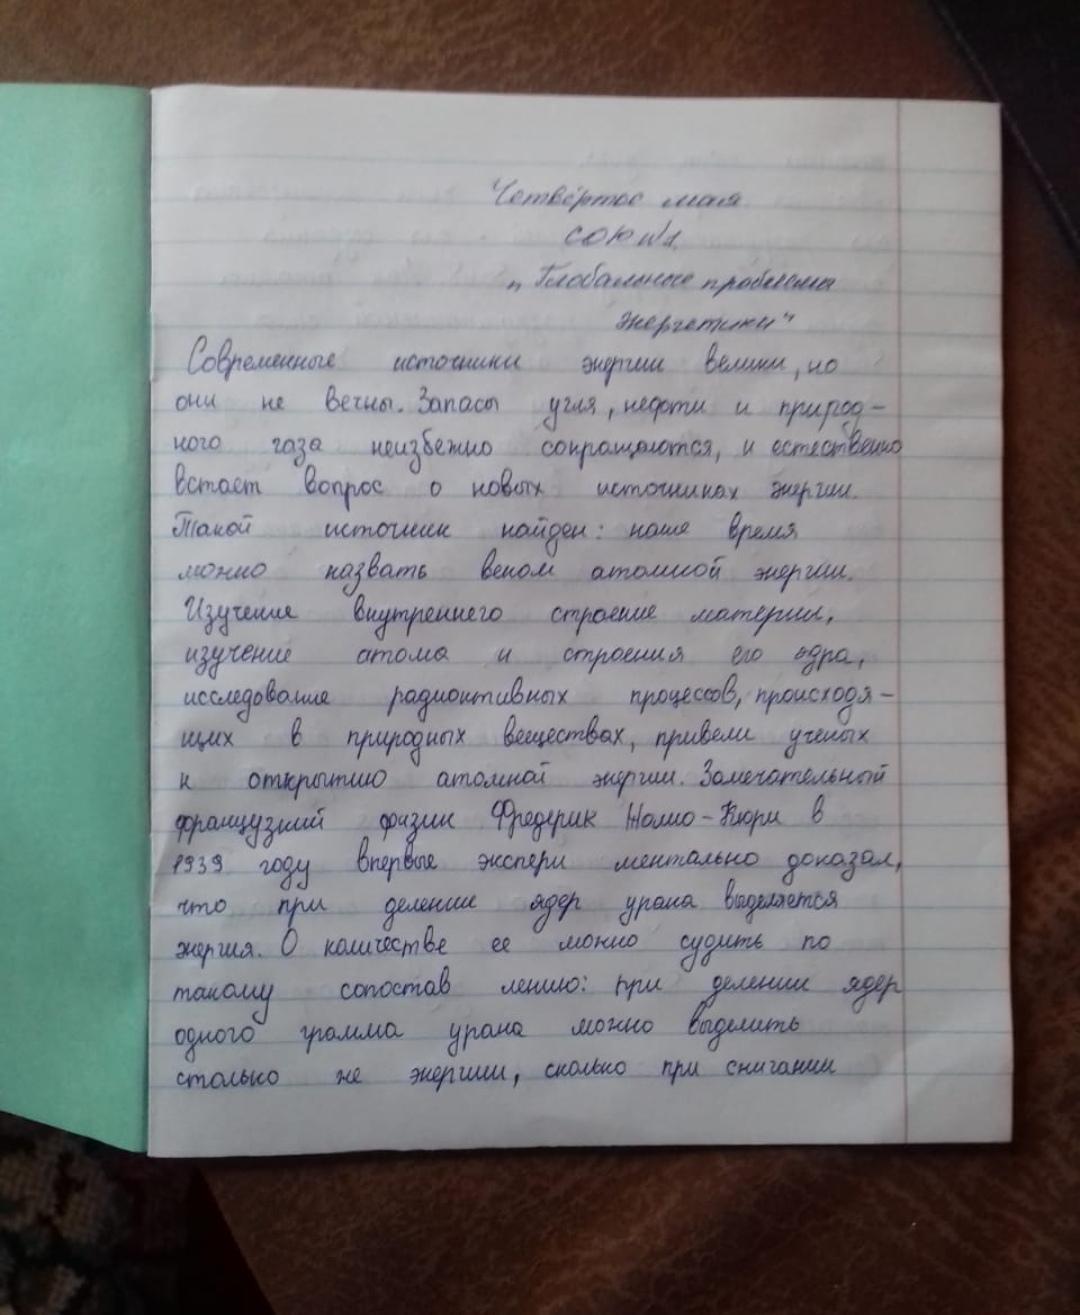 Четвёртое мая
СОЮ №1
„Глобальные проблемы
энергетики"
Современные источники энергии велики, но
они не вечны. Запасы угля, нефти и природ-
ного газа неизбежно сокращаются, и естественно
встает вопрос о новых источниках энергии.
Такой источник найден: наше время
можно назвать веком атомной энергии.
Изучение внутреннего строение материи,
изучение атома и строения его ядра,
исследование радиоктивных процессов, происходя-
щих в природных веществах, привели ученых
к открытию атомной энергии. Замечательный
французкий физик Фредерик Жолио-Кюри в
1939 году впервые экспери ментально доказал,
что при делении ядер урана выделяется
энергия. О количестве ее можно судить по
такому сопостав лению: при делении ядер
одного грамма урана можно выделить
столько же энергии, сколько при сжигании